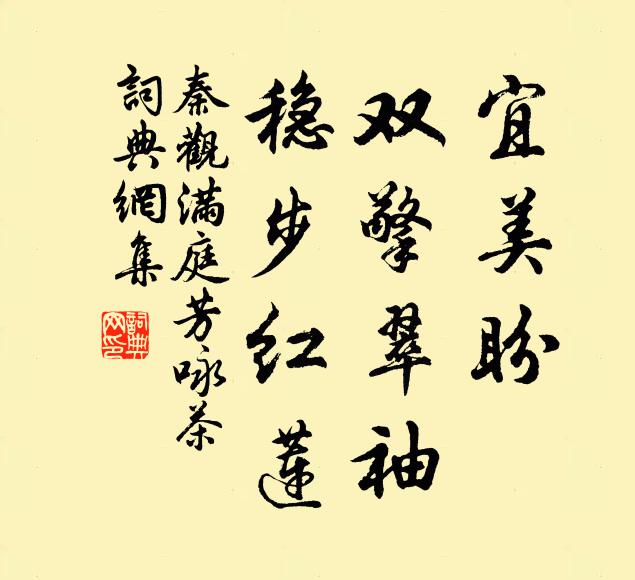 宜美盼
双擎翠袖
稳步红莲
秦觀满庭芳咏茶
詞典網集
詞典
网印